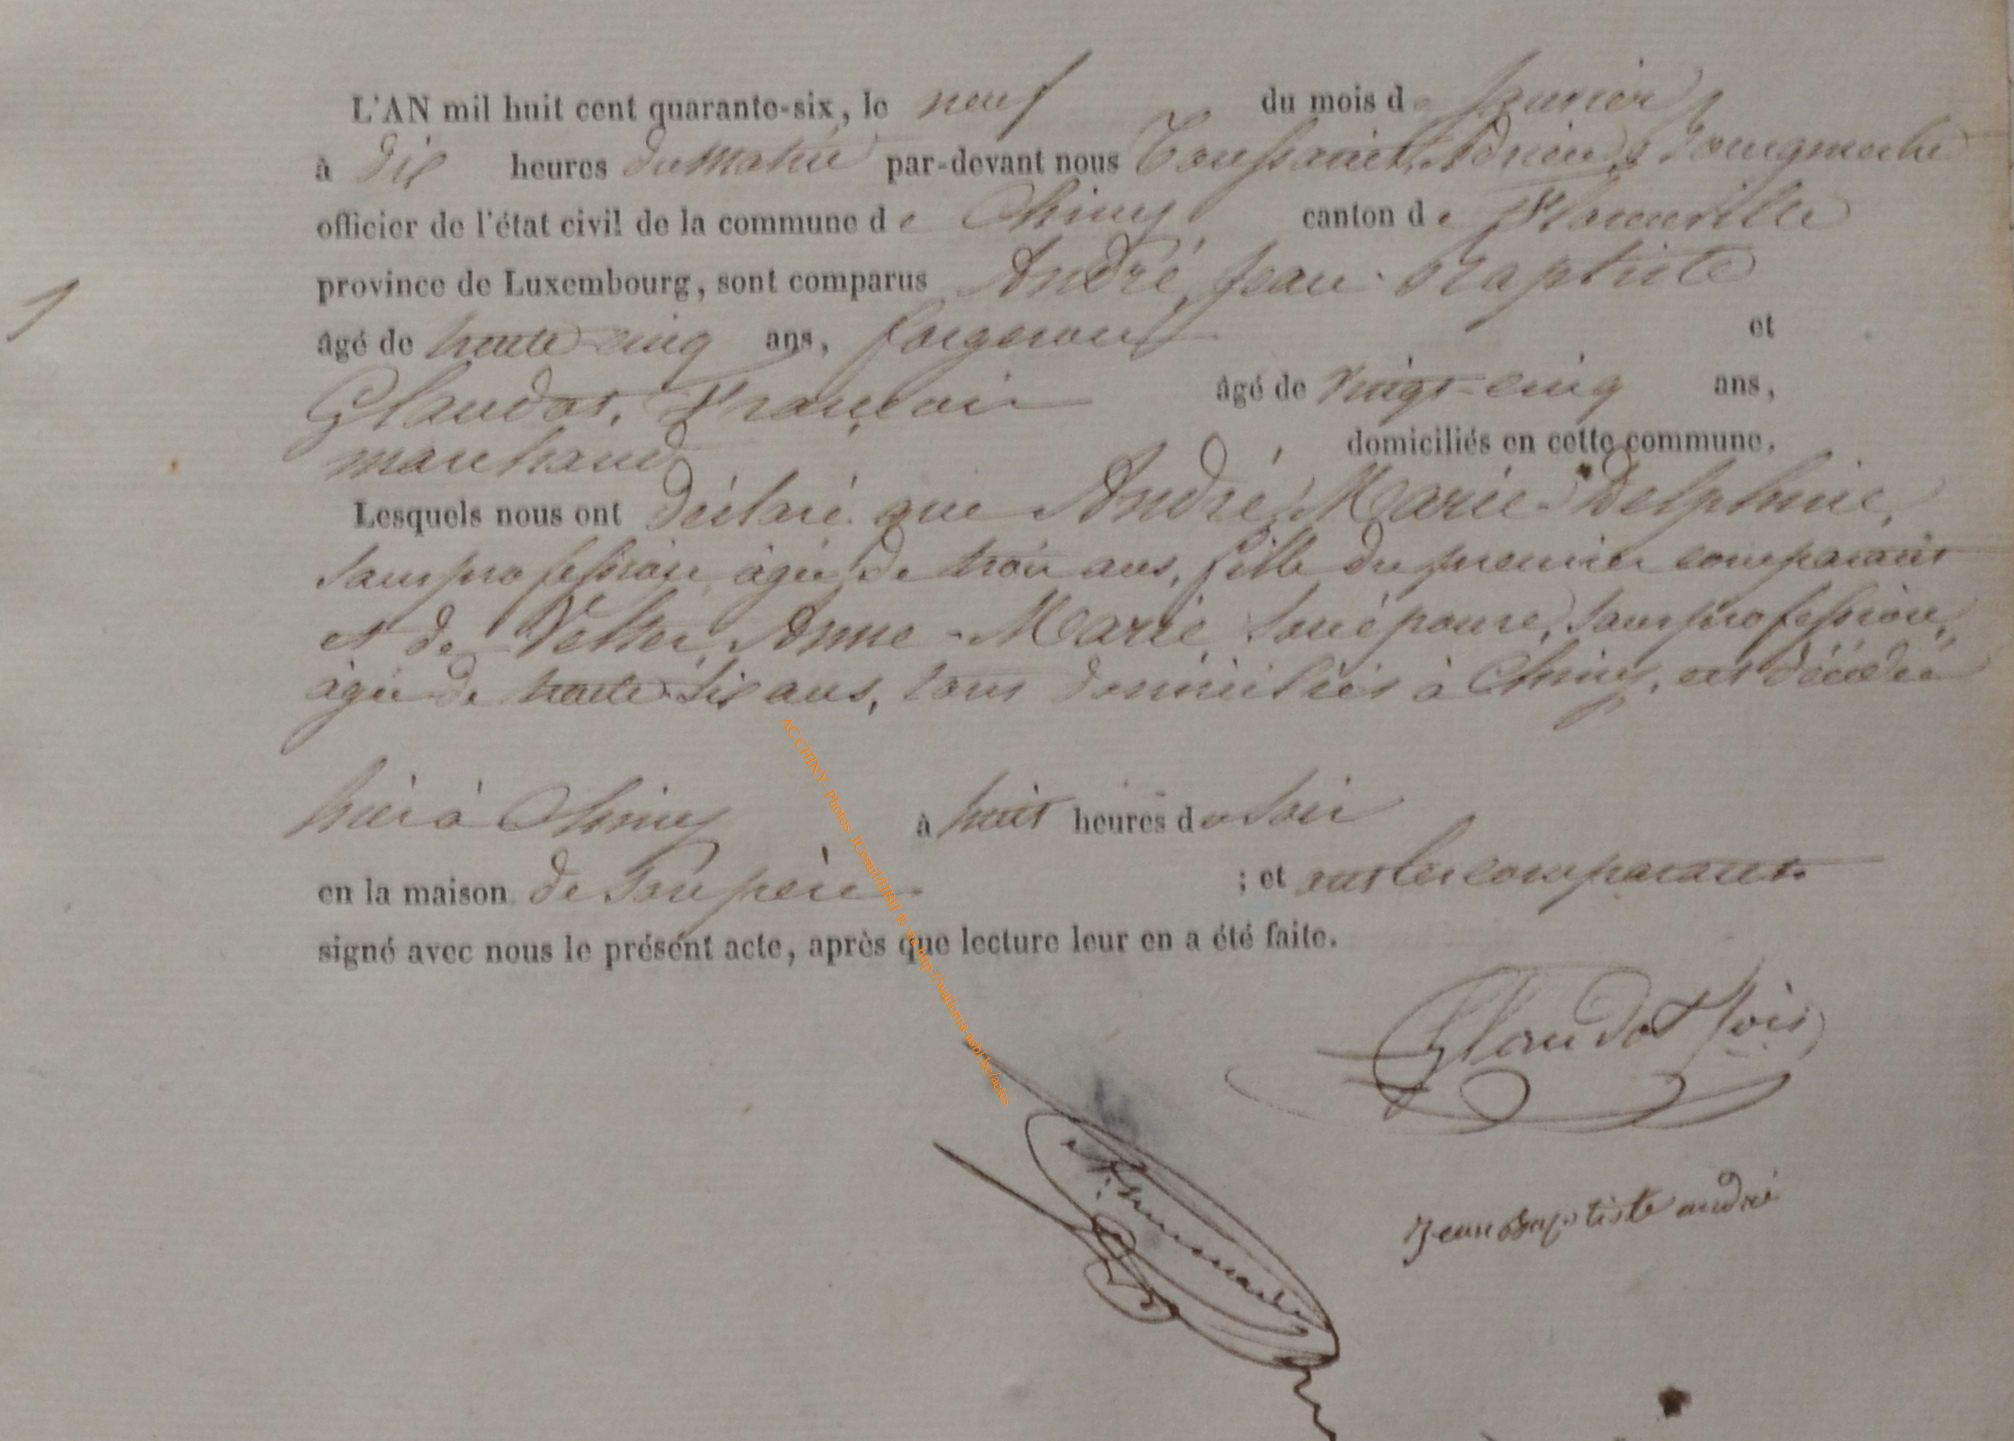 L'AN mil huit cent quarante-six, le neuf du mois de Janvier
à dix heures du matin par-devant nous Toussaint, Adrien,
officier de l'état civil de la commune de Chiny canton de Florenville
province de Luxembourg, sont comparus André, Jean-Baptiste
1
âgé de trente-cinq ans, forgeron et
Glaudot, François âgé de vingt-cinq ans,
marchand domiciliés en cette commune,
Lesquels nous ont déclaré que André, Marie-Delphine,
sans profession, âgée de trois ans, fille du premier comparant
et de Vetter, Anne-Marie, son épouse, sans profession,
âgée de trente-six ans, tous domiciliés à Chiny, est décédée
hier à Chiny à huit heures du soir
en la maison de son père ; et ont les comparants
signé avec nous le présent acte, après que lecture leur en a été faite.
Glaudot fois
Jean Baptiste andré
AC CHINY - Photos: